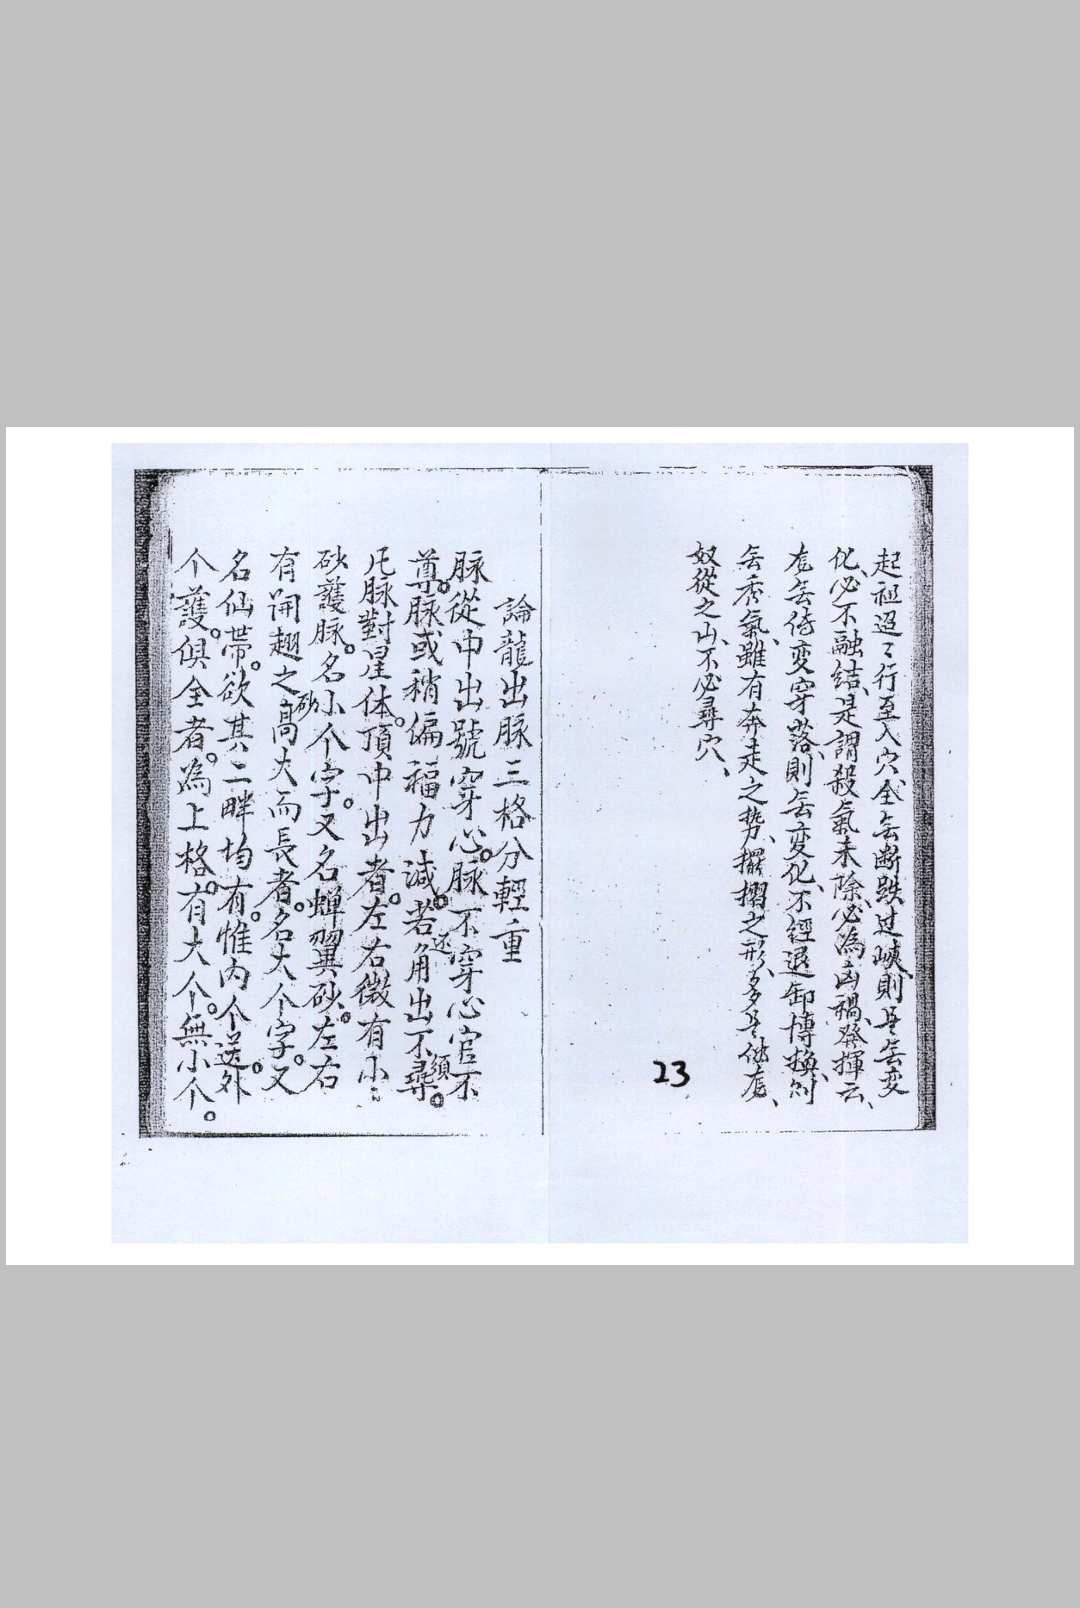 起祖迢〻行至入穴全𠂇断跌过峽則是𠂇变
化必不融結是謂殺氣未除必為凶禍發揮云
龙𠂇侍变穿落則𠂇变化不經退卸博换則
𠂇秀氣雖有奔走之势擺摺之形多是
奴從之山不必尋穴
23
論龍出脉三格分輕重
脉從中出號穿心。脉不穿心官不
尊。脉或稍偏福力减。若还角出不須尋。
凡脉對星体。頂中出者。左右微有小〻
砂護脉。名小个字。又名蝉翼砂。左右
有開翅之砂高大而長者。名大个字。又
名仙帶。欲其二畔均有。惟内个送。外
个護。俱全者。為上格。有大个。無小个。